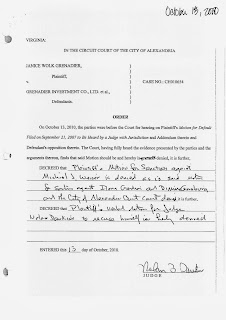 October 13, 2010
VIRGINIA:
IN THE CIRCUIT COURT OF THE CITY OF ALEXANDRIA
JANICE WOLK GRENADIER,
Plaintiff,
v.
CASE NO.:
GRENADIER INVESTMENT CO., LTD. et al.,
Defendants.
ORDER
On October 13, 2010, the parties were before the Court for hearing on Plaintiff's Motion for Default
Filed on September 21, 2007 to Be Heard by a Judge with Jurisdiction and Addendum thereto and
Defendant's opposition thereto. The Court, having fully heard the evidence presented by the parties and the
arguments therein, finds that said Motion should be and hereby is denied, it is further,
DECREED that Plaintiff's Motion for Sanctions against
Michael J. Weiser is denied as is said motion
for Sanctions against Ilona Grenadier and
and the City of Alexandria Court is further
DECREED that Plaintiff's verbal motion for Judge
Nolan Dawkins to recuse himself is hereby denied
ENTERED this 13 day of October, 2010.
JUDGE